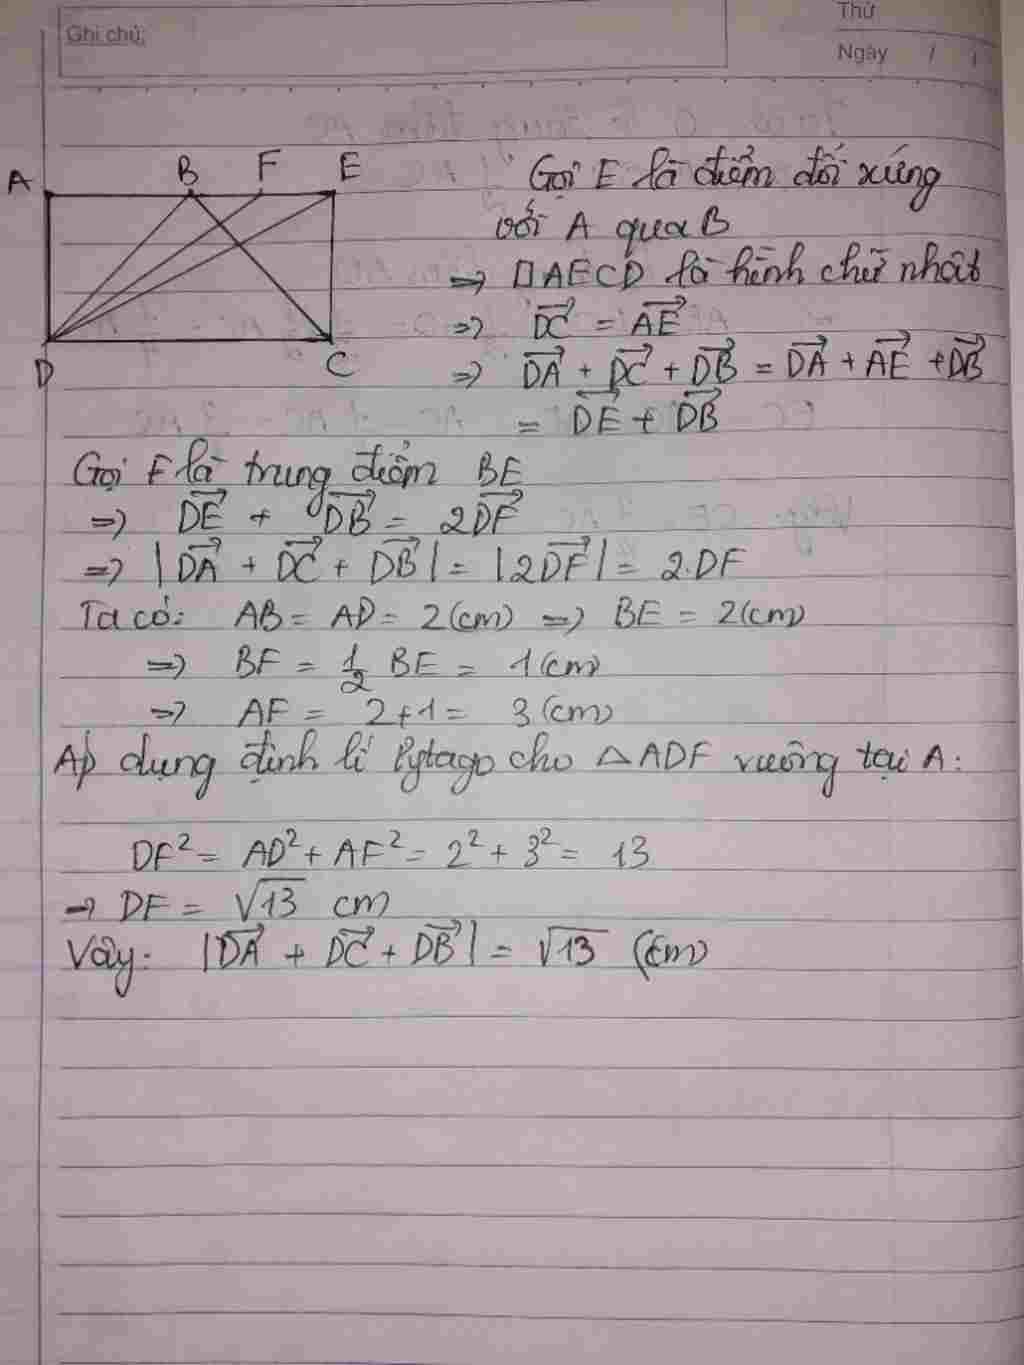 Ghi chú:
Thứ
Ngày / /
A B F E
D C
Gọi E là điểm đối xứng
với A qua B
=> □AECD là hình chữ nhật
=> DC→ = AE→
=> DA→ + DC→ + DB→ = DA→ + AE→ + DB→
= DE→ + DB→
Gọi F là trung điểm BE
=> DE→ + DB→ = 2DF→
=> |DA→ + DC→ + DB→| = |2DF→| = 2.DF
Ta có: AB = AD = 2(cm) => BE = 2(cm)
=> BF = 1/2 BE = 1(cm)
=> AF = 2+1 = 3(cm)
Áp dụng định lí Pytago cho △ADF vuông tại A:
DF² = AD² + AF² = 2² + 3² = 13
=> DF = √13 cm
Vậy: |DA→ + DC→ + DB→| = √13 (cm)